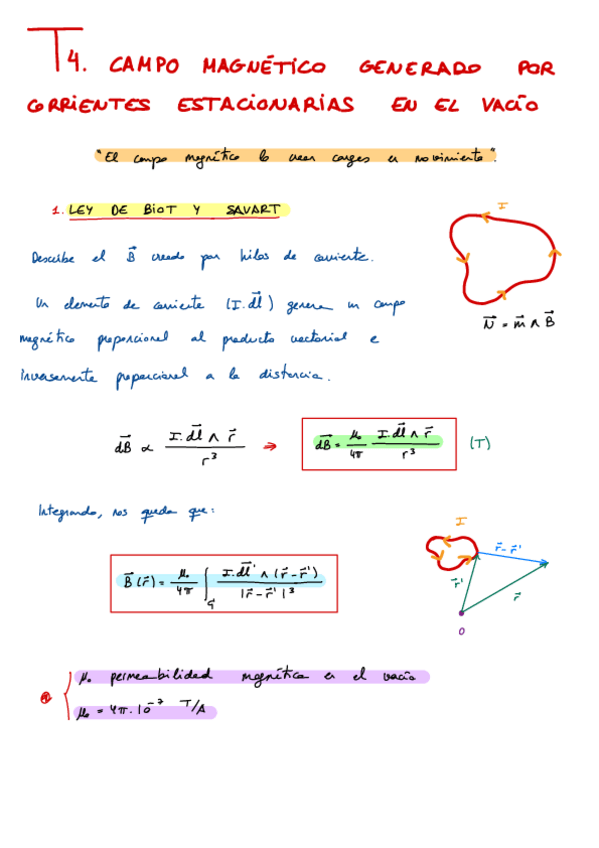 T4. CAMPO MAGNÉTICO GENERADO POR
CORRIENTES ESTACIONARIAS EN EL VACÍO
"El campo magnético lo crean cargas en movimiento".
1. LEY DE BIOT Y SAVART
I
Describe el B⃗ creado por hilos de corriente.
Un elemento de corriente (I.dl⃗) genera un campo
magnético proporcional al producto vectorial e
inversamente proporcional a la distancia.
N⃗ = m⃗ ∧ B⃗
dB⃗ ∝ I.dl⃗ ∧ r⃗ / r³ → dB⃗ = μ₀/4π I.dl⃗ ∧ r⃗ / r³ (T)
Integrando, nos queda que:
I
r⃗ - r⃗'
r⃗'
r⃗
O
B⃗(r⃗) = μ₀/4π ∫ I.dl⃗' ∧ (r⃗ - r⃗') / |r⃗ - r⃗'|³
μ₀ permeabilidad magnética en el vacío
μ₀ = 4π.10⁻⁷ T/A